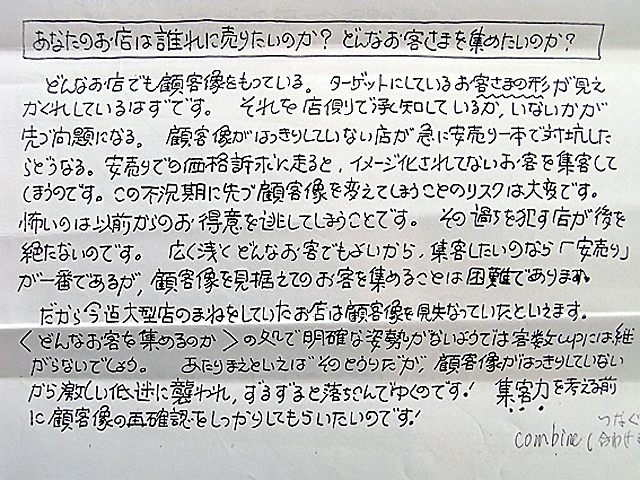 あなたのお店は誰れに売りたいのか? どんなお客さまを集めたいのか?
どんなお店でも顧客像をもっている。ターゲットにしているお客さまの形が見え
かくれしているはずです。 それを店側で承知しているか、いないかが
先づ問題になる。 顧客像がはっきりしていない店が急に安売り一本で対抗した
らどうなる。安売りでの価格訴求に走ると、イメージ化されてないお客を集客して
しまうのです。この不況期に先づ顧客像を変えてしまうことのリスクは大変です。
怖いのは以前からのお得意を逃してしまうことです。 その過ちを犯す店が後を
絶たないのです。 広く浅くどんなお客でもよいから、集客したいのなら「安売り」
が一番であるが、顧客像を見据えてのお客を集めることは困難でありまれ
だから今迄大型店のまねをしていたお店は顧客像を見失なっていたといえます。
〈どんなお客を集めるのか〉の処で明確な姿勢がないようでは客数upには継
がらないでしょう。 あたりまえといえばそのとうりだが、顧客像がはっきりしていない
から激しい低迷に襲われ、ずるずると落ちこんでゆくのです! 集客力を考える前
に顧客像の再確認をしっかりしてもらいたいのです!
つなぐ
combine( 合わせ